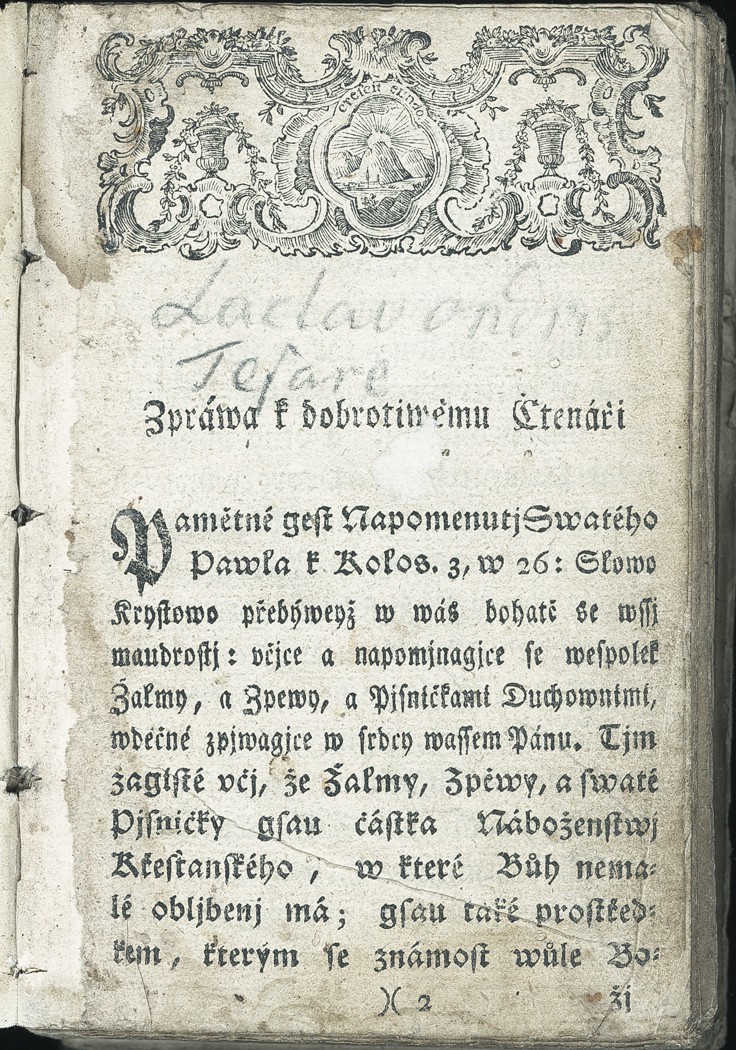 crescit eundo
Laclav
Tesare
Zpráwa k dobrotiwému Čtenáři
Pamětné gest Napomenutj Swatého
Pawla k Kolos. 3, w 26: Slowo
Krystowo přebýweyž w wás bohatě se wssj
maudrostj: včjce a napomjnagjce se wespolek
Žalmy, a Zpewy, a Pjsničkami Duchownimi,
wděčné zpjwagjce w srdcy wassem Pánu. Tjm
žagisté včj, že Žalmy, Zpěwy, a swaté
Pjsničky gsau částka Náboženstwj
Křesťanského, w které Bůh nema-
lé obljbenj má; gsau také prostřed-
kem, kterým se známost wůle Bo-
)( 2 žj